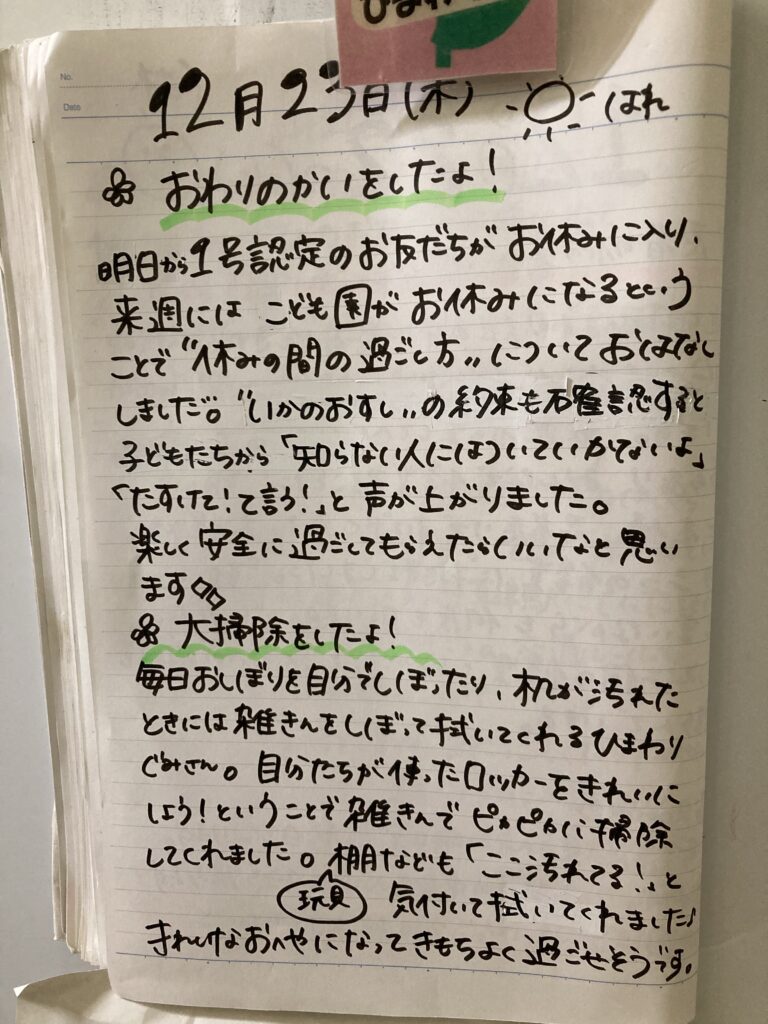 No.
Date
12月23日(木) はれ
おわりのかいをしたよ!
明日から1号認定のお友だちが お休みに入り、
来週には こども園が お休みになるという
ことで "休みの間の過ごし方" について おはなし
しました。"いかのおすし" の約束も確認すると
子どもたちから「知らない人にはついていかないよ」
「たすけて!て言う!」と 声が上がりました。
楽しく安全に過ごしてもらえたらいいなと思い
ます
大掃除をしたよ!
毎日おしぼりを自分でしぼったり、机が汚れた
ときには雑きんをしぼって拭いてくれるひまわり
ぐみさん。自分たちが使ったロッカーをきれいに
しよう!ということで雑きんでピカピカに掃除
してくれました。棚なども「ここ汚れてる!」と
玩具 気付いて拭いてくれました♪
きれいなおへやになってきもちよく過ごせそうです。